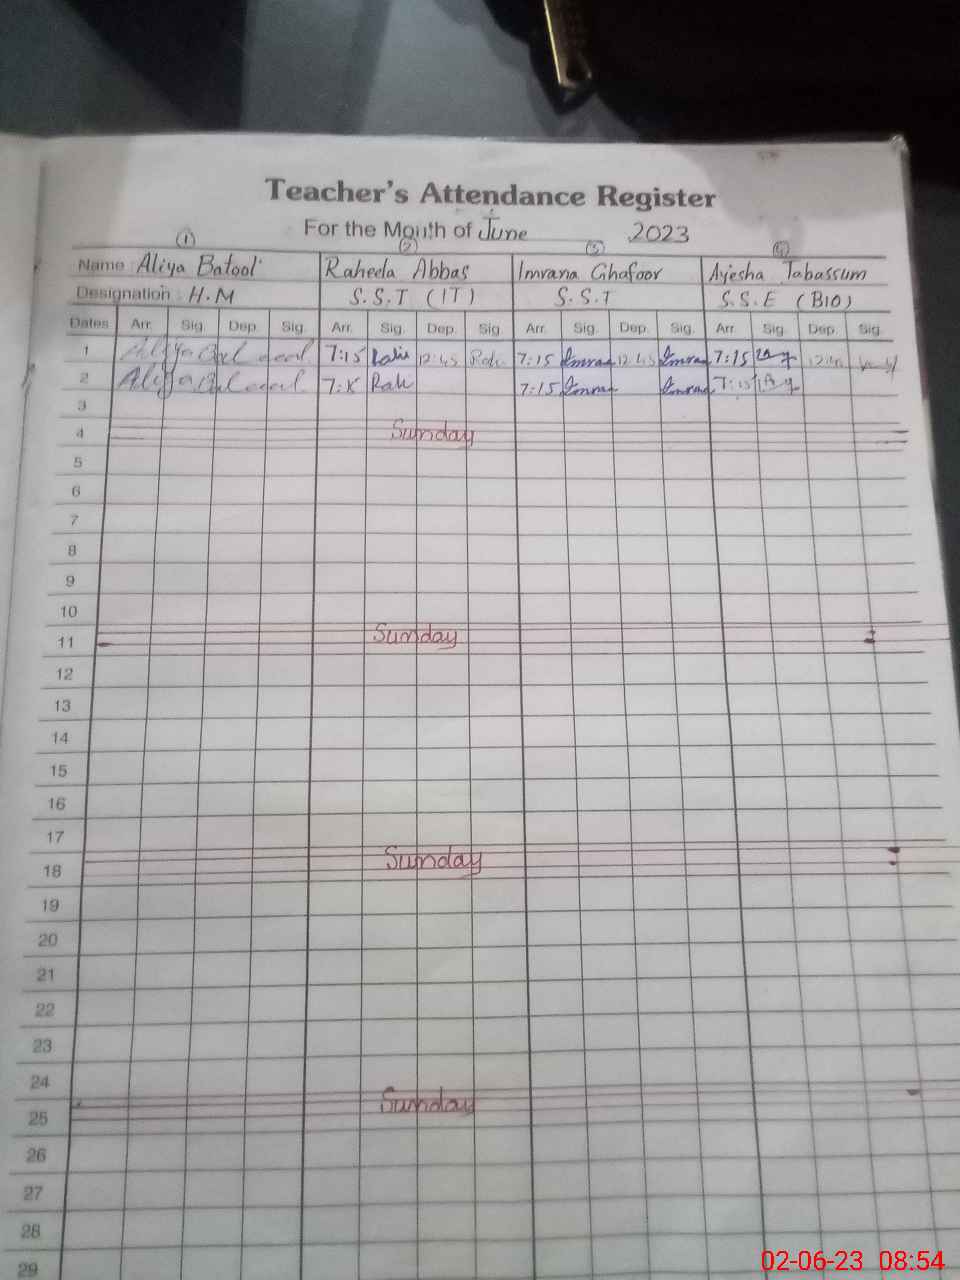 Teacher's Attendance Register
For the Month of June 2023
1 2 3 4
Name : Aliya Batool Raheela Abbas Imrana Ghafoor Ayesha Tabassum
Designation : H.M S.S.T (IT) S.S.T S.S.E (BIO)
Dates Arr. Sig. Dep. Sig. Arr. Sig. Dep. Sig. Arr. Sig. Dep. Sig. Arr. Sig. Dep. Sig.
1 7:15 12:45 7:15 12:45 7:15
2 7:15
3
4 Sunday
5
6
7
8
9
10
11 Sunday
12
13
14
15
16
17
18 Sunday
19
20
21
22
23
24
25 Sunday
26
27
28
29
02-06-23 08:54